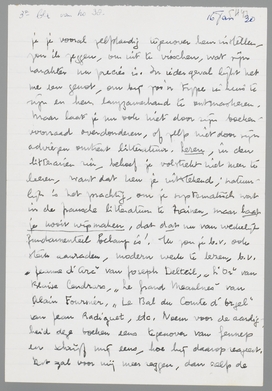 16 Jan '30
je je vooral zelfstandig tegenover hem instellen,
om te zien, wat zijn
karakter nu precies is. In ieder geval lijkt het
me een genot, om zoo'n type in huis te
zijn en hem langzamerhand te ontmaskeren.
Maar laat je nu ook niet door zijn boeken-
voorraad overdonderen, of zelfs niet door zijn
adviezen omtrent litteratuur. Leeren, in den
litterairen zin, behoef je volstrekt niet meer te
leeren, want dat ken je uitstekend; natuur-
lijk is het prachtig, om je systematisch wat
in de fransche litteratuur te trainen, maar laat
je nooit wijsmaken, dat dat nu van werkelijk
fundamenteel belang is! Ik zou je b.v. ook
sterk aanraden, modern werk te lezen, b.v.
"Jeanne d'Arc" van Joseph Delteil, "L'Or" van
Blaise Cendrars, "Le Grand Meaulnes" van
Alain Fournier, "Le Bal du Comte d'Orgel"
van Jean Radiguet, etc. Noem voor de aardig-
heid deze boeken eens tegenover
en schrijf mij eens, hoe hij daarop reageert.
Dit zal voor mij meer zeggen, dan zelfs de